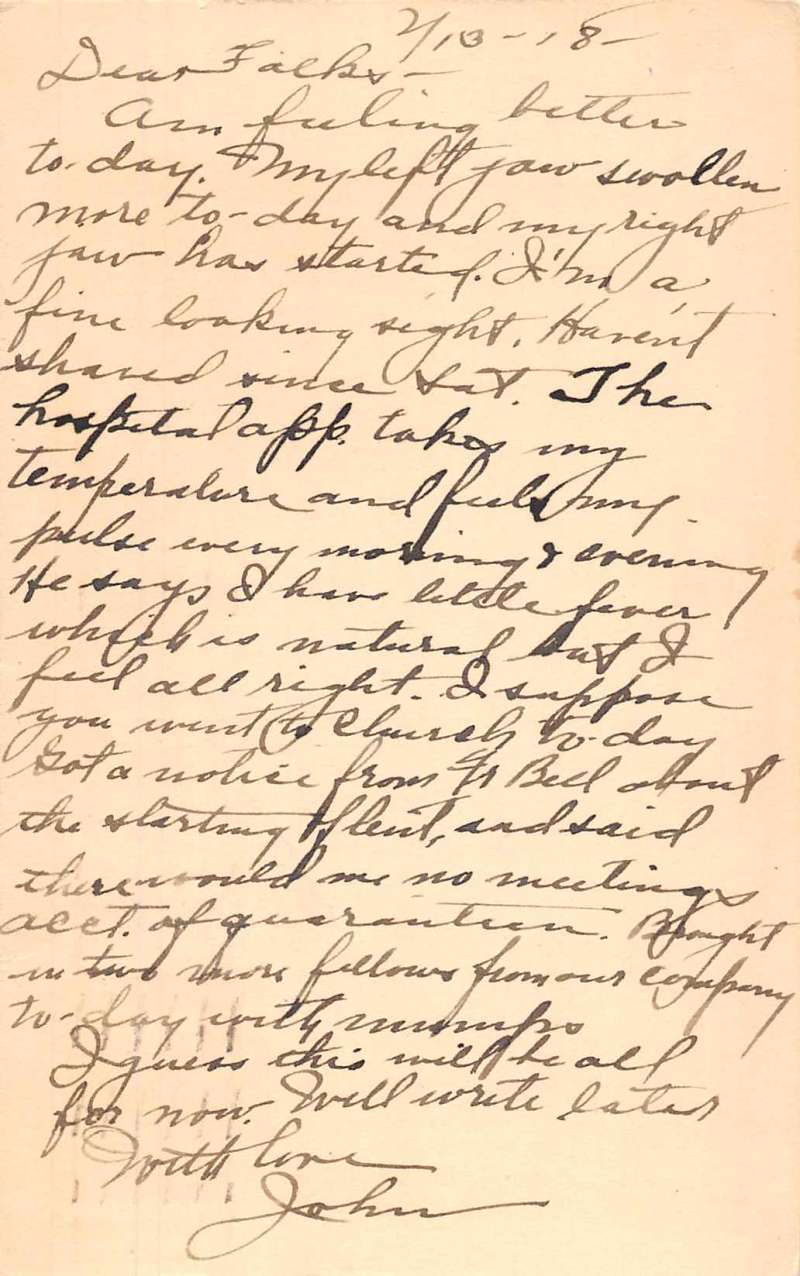 2/13-18-
Dear Folks-
Am feeling better
to-day. My left jaw swollen
more to-day and my right
jaw has started. I'm a
fine looking sight. Haven't
shaved since Sat. The
hospital app. takes my
temperature and feels my
pulse every morning & evening
He says I have little fever
which is natural but I
feel all right. I suppose
you went to Church to-day
Got a notice from Fr Bell about
the starting of lent, and said
there would me no meetings
acct. of quarantien. Brought
in two more fellows from our company
to-day with mumps
I guess this will be all
for now. Will write later
With love
John